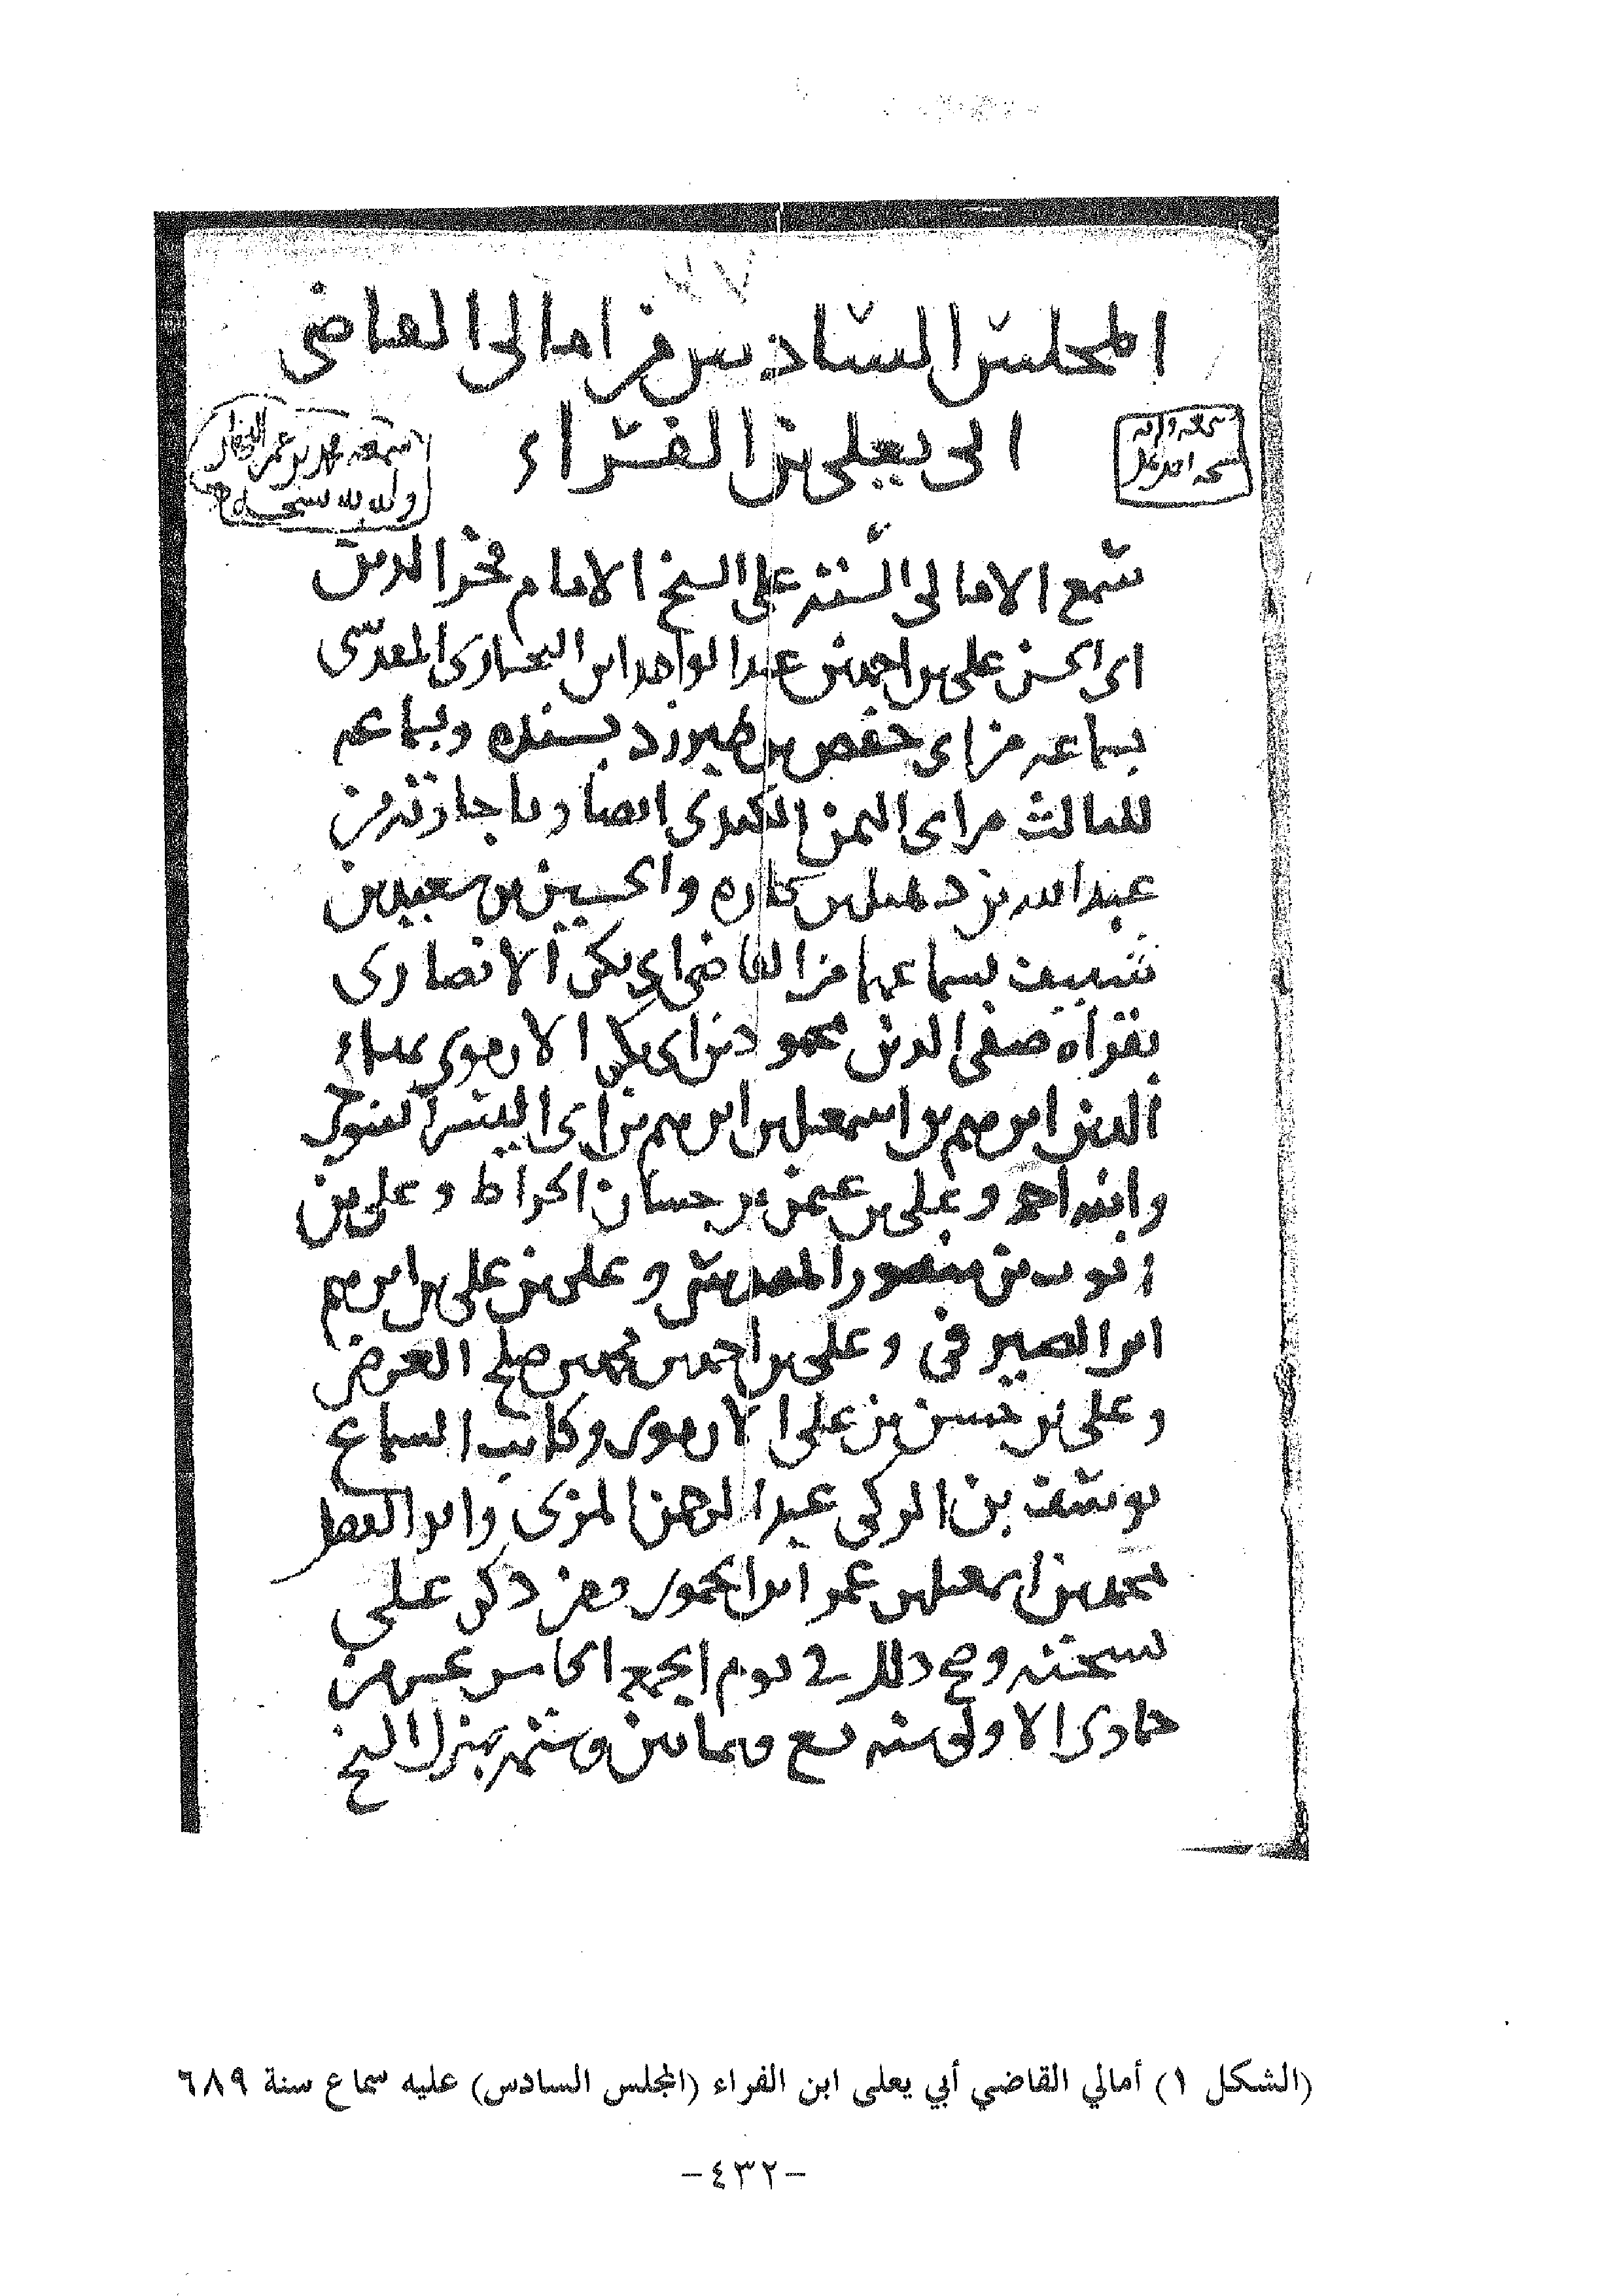 المجلس السادس من امالي القاضي
ابي يعلى بن الفراء
سمعه محمد بن عمر
ولله بنسخه
سمع الامالي الستة على الشيخ الامام فخر الدين
ابي الحسن علي بن احمد بن عبد الواحد ابن البخاري المقدسي
بسماعه من ابي حفص بن طبرزد بسنده وبسماعه
للثالث من ابي اليمن الكندي ايضا وباجازته من
عبد الله بن دهبل بن كاره والحسين بن سعيد بن
شنيف بسماعهما من القاضي ابي بكر الانصاري
بقراة صفي الدين محمود بن ابي بكر الارموي بهاء
الدين ابرهيم بن اسمعيل بن ابرهيم بن ابي اليسر التنوخي
وابنه احمد وعلي بن عثمن بن حسان الخراط وعلي بن
ايوب بن منصور المقدسي وعلي بن علي بن ابرهيم
ابن الصيرفي وعلي بن احمد بن محمد بن صلح العرضي
وعلي بن حسن بن علي الارموي وكاتب السماع
يوسف بن الزكي عبد الرحمن المزي وابو الفضل
محمد بن اسمعيل بن عمر ابن الحموي ومن ذكر على
نسخته وصح ذلك في يوم الجمعة الخامس عشر من
جمادى الاولى سنة تسع وثمانين وستمئة بمنزل الشيخ
(الشكل ١) أمالي القاضي أبي يعلى ابن الفراء (المجلس السادس) عليه سماع سنة ٦٨٩
-٤٣٢-